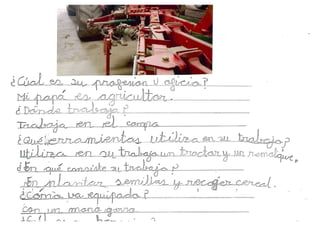 ¿Cúal es su profesion u oficio?
Mi papá es agricultor.
¿Dónde trabaja?
Trabaja en el campo
¿Qué erramientas utiliza en su trabajo?
Utiliza en su trabajo un tractor y un remolque.
¿En qué consiste su trabajo?
En plantar semillas y recojer cereal.
¿Cómo va equipado?
Con un mono gorra